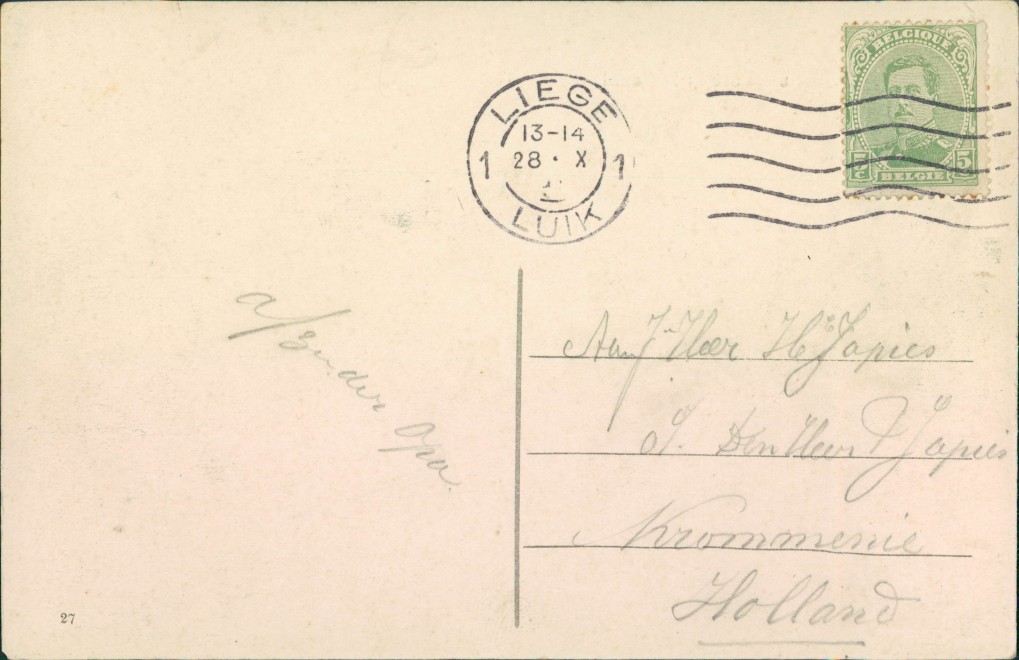 BELGIQUE
5 c 5 c
BELGIË
LIEGE
13-14
1 28 · X 1
LUIK
a/zender Opa.
Aan J Heer H Japies
Den Heer P Japies
Krommenie
Holland
27